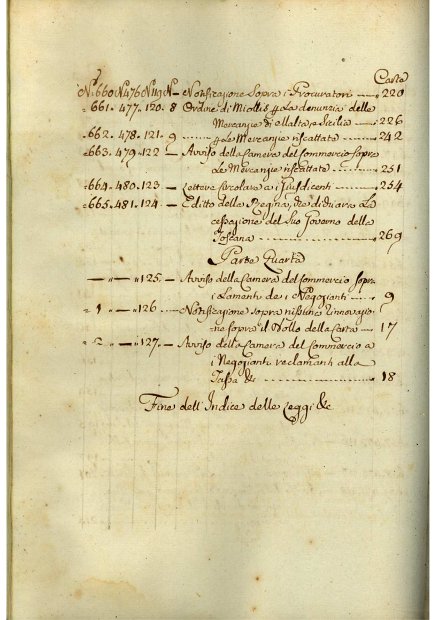 Carte
N.° 660 N.° 476 N.° 119 N.° — Notificazione Sopra i Procuratori —— 220
" 661. " 477. " 120. " 8 Ordine di Miollis p. la denunzia delle
Mercanzie di Malta e Sicilia —— 226
" 662. " 478. " 121. " 9 ———— p. le Mercanzie riscattate —— 242
" 663. " 479. " 122 — Avviso della Camera del Commercio sopra
le Mercanzie riscattate —— 251
" 664. " 480. " 123 — Lettera Circolare a i Jusdicenti —— 254
" 665. " 481. " 124 — Editto della Regna, che dichiara la
cessazione del Suo Governo della
Toscana —— 269
Parte Quarta
— " — " 125. — Avviso della Camera del Commercio sopra
i Lamenti de i Negozianti —— 9
" 1 " — " 126 — Notificazione sopra l'innovazio
ne sopra il Bollo della Carta — 17
" 2 " — " 127. — Avviso della Camera del Commercio a
i Negozianti reclamanti alla
Tassa &c —— 18
Fine dell'Indice delle Leggi &c